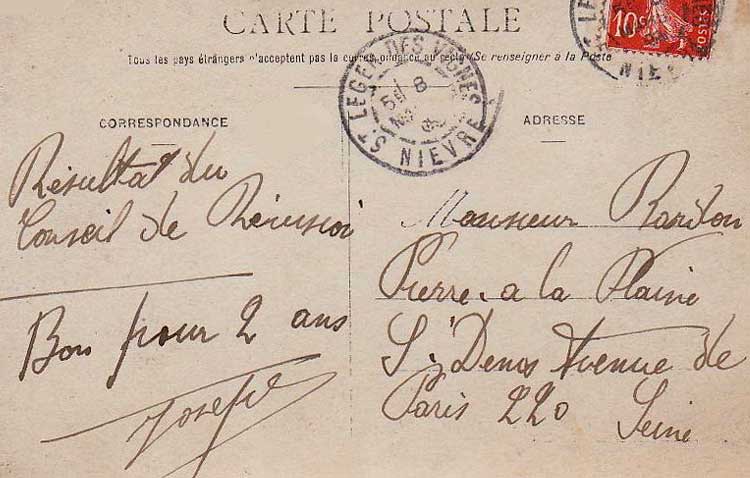 CARTE POSTALE
Tous les pays étrangers n'acceptent pas la correspondance au recto (Se renseigner à la Poste
CORRESPONDANCE
ADRESSE
ST LEGER DES VIGNES
NIEVRE
10c POSTES
LE
NIE
Résultat du
Conseil de Révision
Bon pour 2 ans
Joseph
Monsieur
Pierre. a la Plaine
St Denis Avenue de
Paris 220 Seine